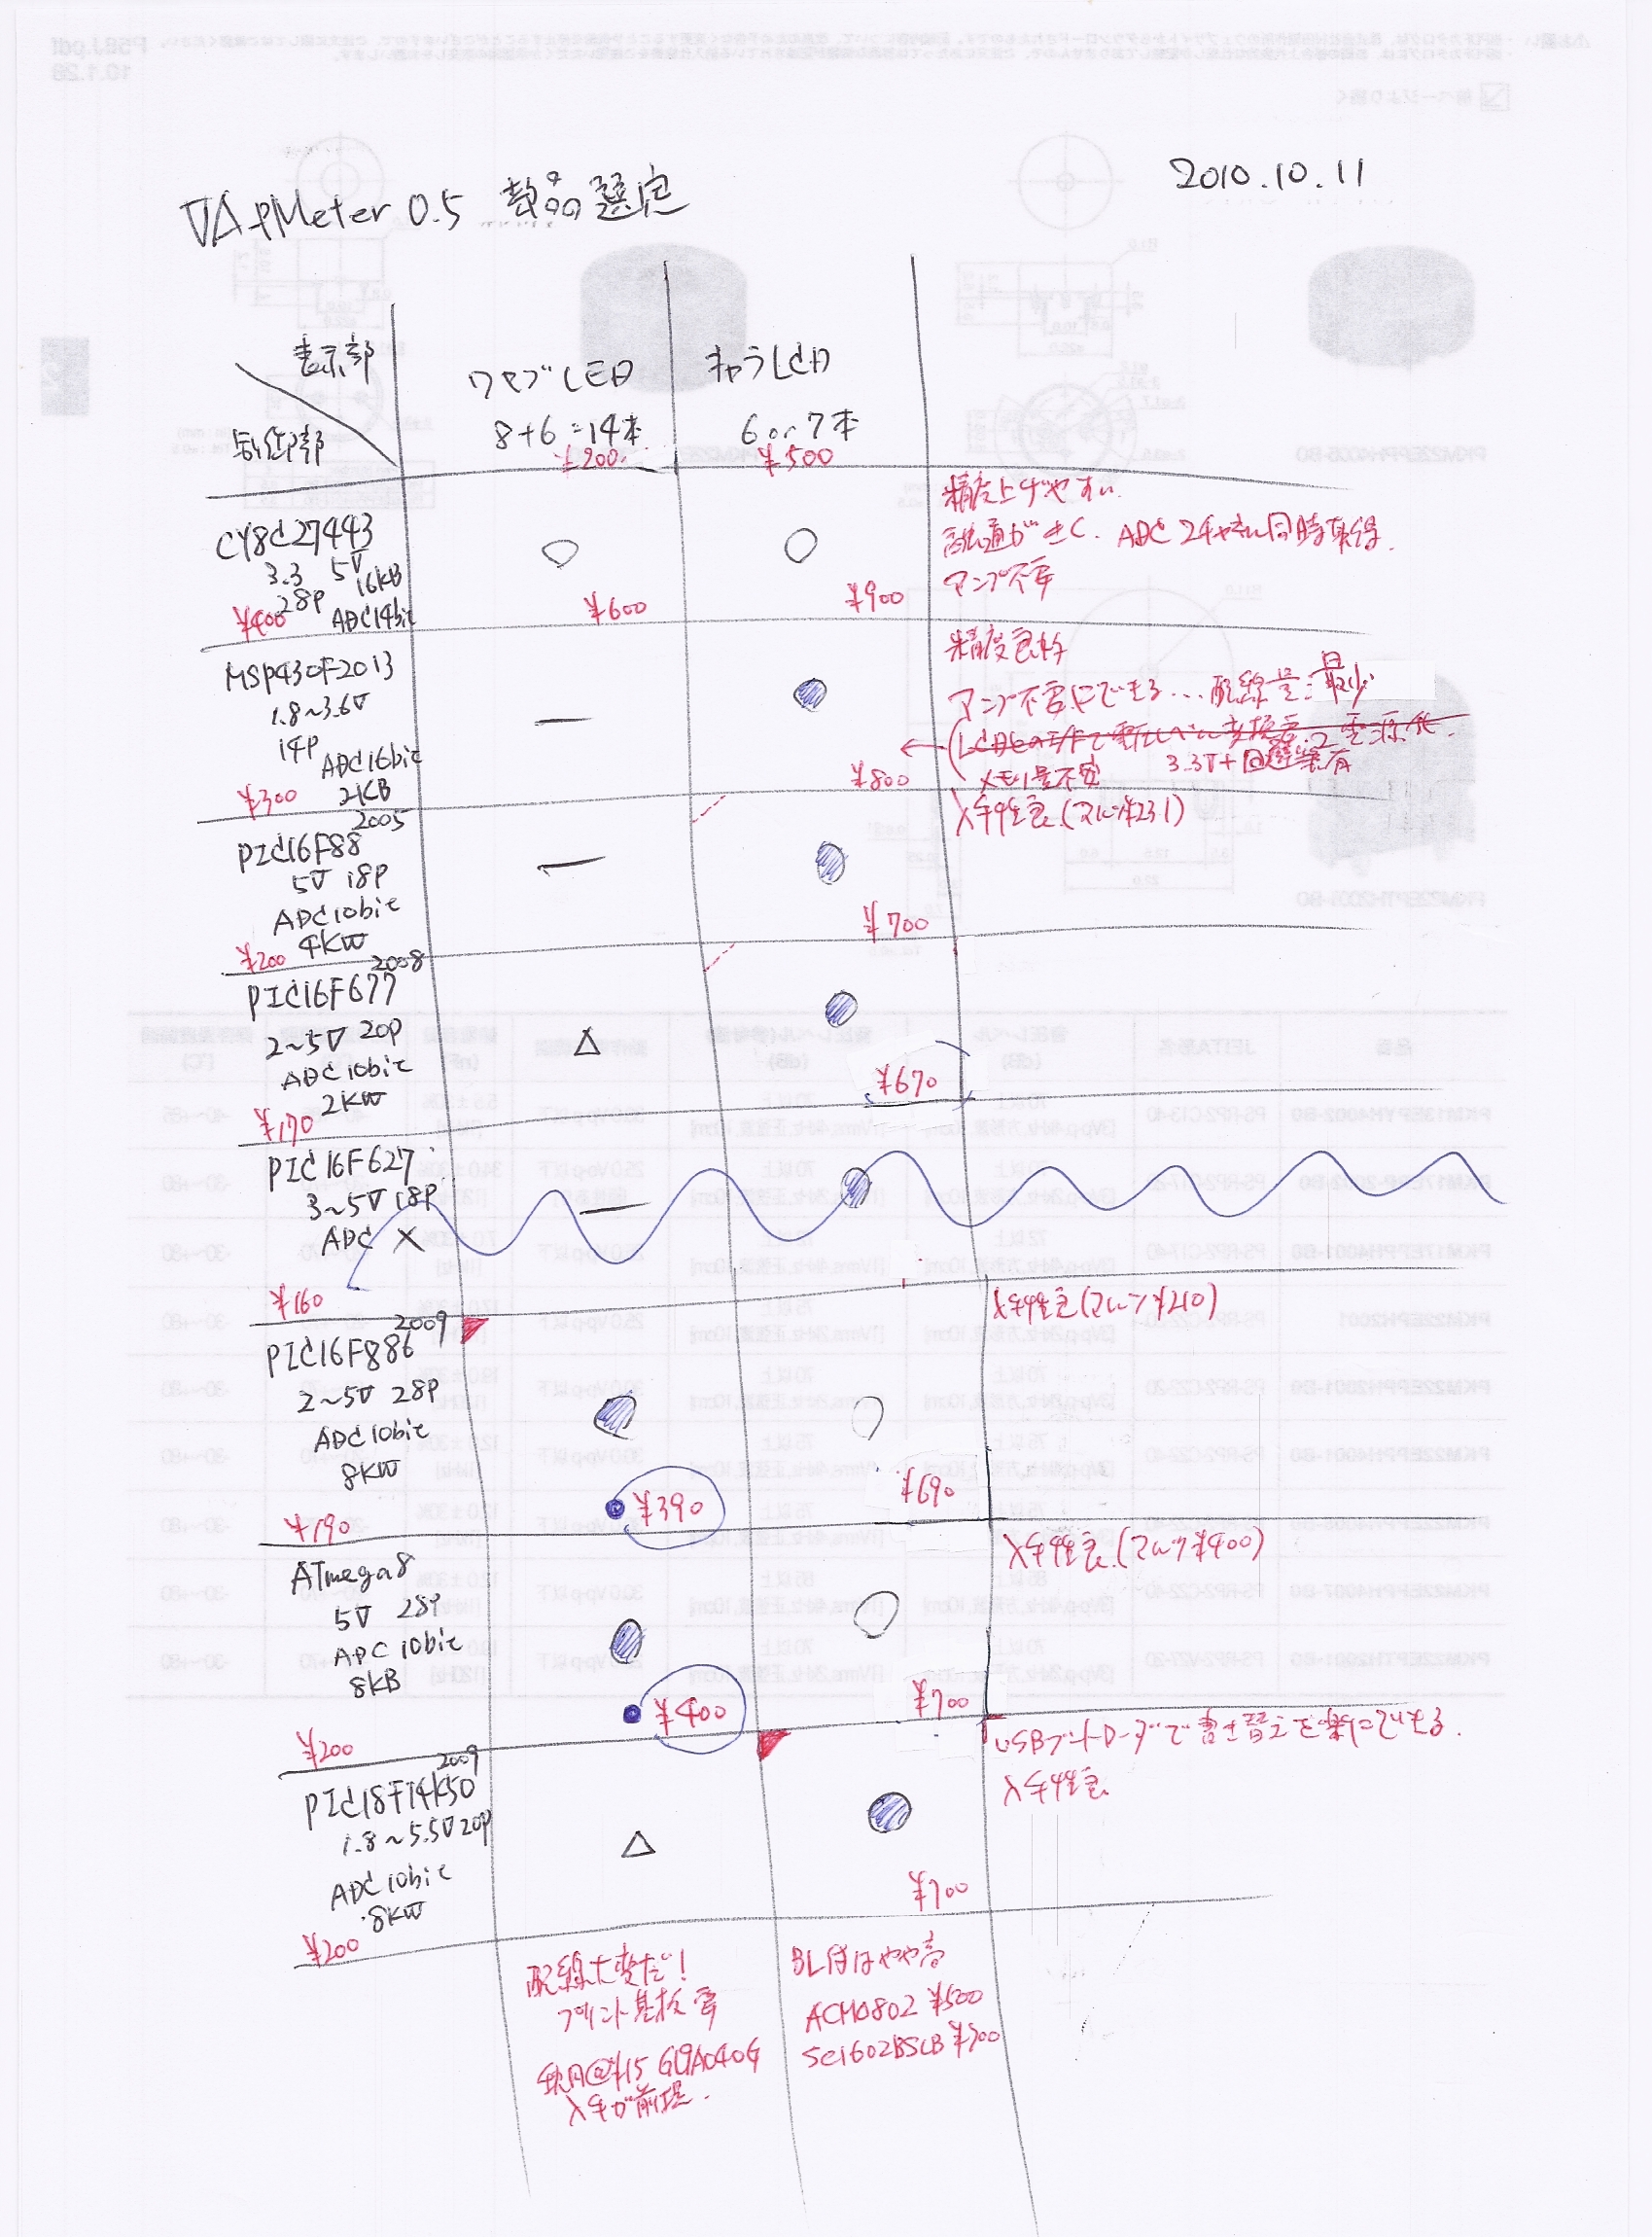 VA+PMeter 0.5 部品選定
2010.10.11
表示部
制御部
7セグLED
8+6=14本
¥200
キャラLCD
6 or 7本
¥500
CY8C27443
3.3 5V
28P 16KB
ADC14bit
¥400
¥600
¥900
精度上げやすい
融通がきく. ADC 2チャネル同時取得.
アンプ不要
MSP430F2013
1.8~3.6V
14P
ADC16bit
2KB
¥300
¥800
精度良好
アンプ不要にできる... 配線量:最少
3.3V+回避策有
メモリ量不安
2005
PIC16F88
5V 18P
ADC10bit
4KW
¥200
¥700
入手性良.(マルツ¥231)
2008
PIC16F677
2~5V 20P
ADC10bit
2KW
¥170
¥670
PIC16F627
3~5V 18P
ADC ×
¥160
2009
PIC16F886
2~5V 28P
ADC10bit
8KW
¥190
¥390
¥690
入手性良(マルツ¥210)
ATmega8
5V 28P
ADC 10bit
8KB
¥200
¥400
¥700
入手性良.(マルツ¥400)
2009
PIC18F14K50
1.8~5.5V 20P
ADC10bit
8KW
¥200
¥700
USBブートローダで書き替えを楽にできる.
入手性良.
配線大変だ!
プリント基板要
秋月@¥15 GL9A040G
入手が前提.
BL付はやや高
ACM0802 ¥500
SC1602BSLB ¥700